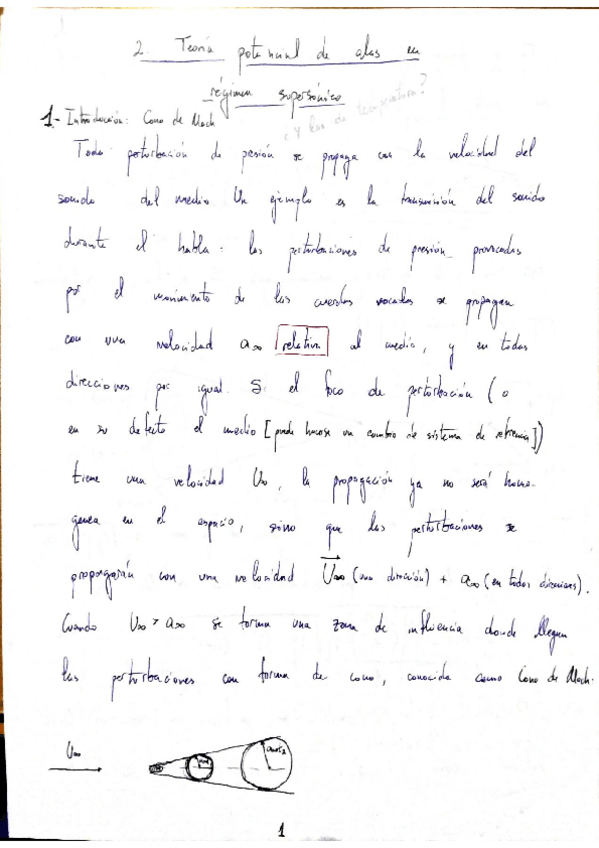 2. Teoría potencial de alas en
régimen supersónico
¿Y las de temperatura?
1.- Introducción: Cono de Mach
Toda perturbación de presión se propaga con la velocidad del
sonido del medio Un ejemplo es la transmisión del sonido
durante el habla: las perturbaciones de presión provocadas
por el movimiento de las cuerdas vocales se propagan
con una velocidad a∞ relativa al medio, y en todas
direcciones por igual. Si el foco de perturbación (o
en su defecto el medio [puede hacerse un cambio de sistema de referencia])
tiene una velocidad U∞, la propagación ya no será homo-
genea en el espacio, sino que las perturbaciones se
propagarán con una velocidad U∞ (una dirección) + a∞ (en todas direcciones).
Cuando U∞ > a∞ se forma una zona de influencia donde llegan
las perturbaciones con forma de cono, conocida como Cono de Mach.
U∞
1